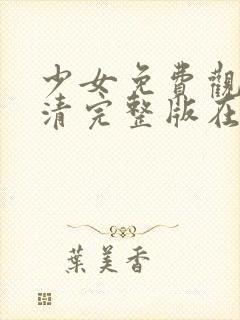 少女免費觀
清完整版在
葉美香